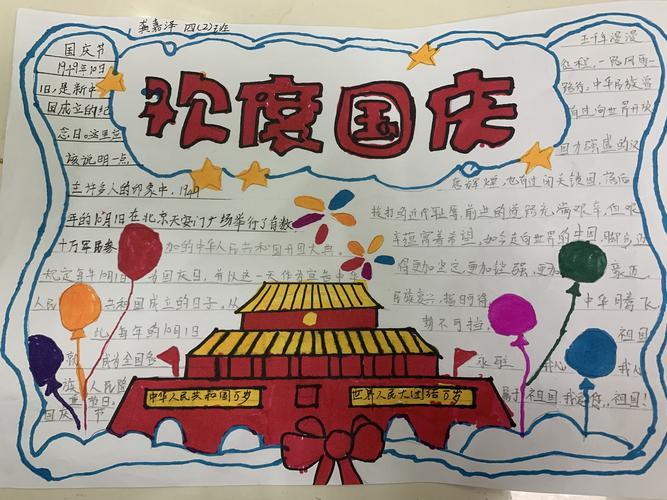 龚嘉泽 四(2)班
欢度国庆
国庆节
1949年10月
1日,是新中
国成立的纪
念日。这里应
该说明一点
在许多人的印象中,1949
年的10月1日在北京天安门广场举行了有数
十万军民参加的中华人民共和国开国大典
规定每年10月1日为国庆日,并以这一天作为宣告中华
人民共和国成立的日子,从
此每年的10月1日
成为全国各
族人民
节日
国庆节
五千年漫漫
征程,一路风雨
中华民族曾
向世界开放
国力强盛的汉
唐辉煌,也有过闭关锁国,落后
挨打的近代耻辱,前进的道路充满艰辛,但艰
辛蕴育着希望,如今走向世界的中国,脚步
得更加坚定,更加轻强,更加豪迈,
民族复兴,指日可待,中华腾飞
势不可挡,祖国
永驻我心
属于祖国,我爱您,祖国!
中华人民共和国万岁
世界人民大团结万岁